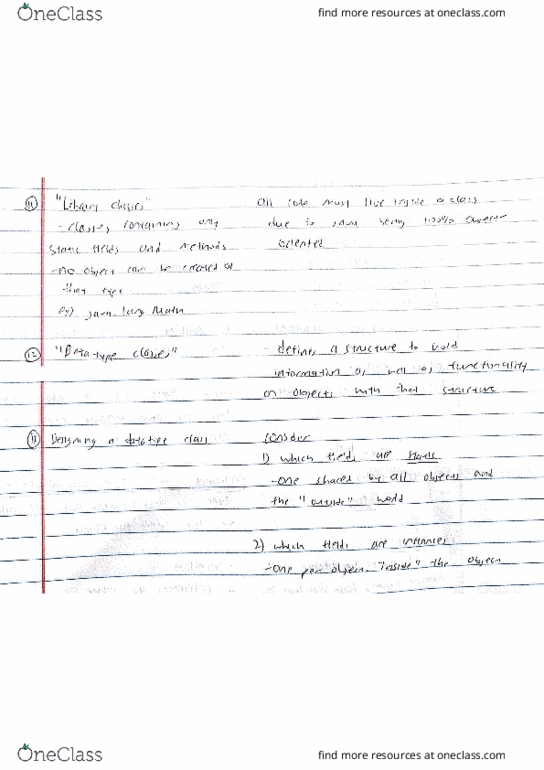 OneClass
find more resources at oneclass.com
11 "Library classes"
- classes containing only
static fields and methods
- no object can be created of
that type
ex) java.lang.Math
all code must live inside a class
due to java being object
oriented
12 "Data type classes"
defines a structure to hold
information as well as functionality
on objects with that structure
Designing a datatype class
consider
1) which fields are static
- one shared by all objects and
the "outside" world
2) which fields are instances
- one per object, "inside" the object
OneClass
find more resources at oneclass.com